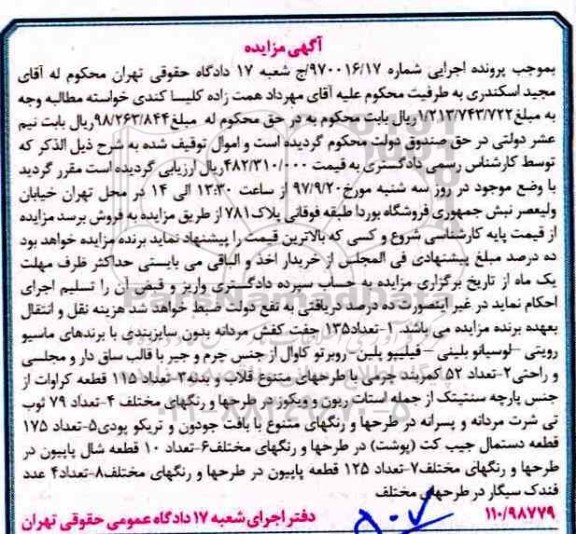 آگهی مزایده
بموجب پرونده اجرایی شماره ۹۷۰۰۱۶/۱۷/ج شعبه ۱۷ دادگاه حقوقی تهران محکوم له آقای
مجید اسکندری به طرفیت محکوم علیه آقای مهرداد همت زاده کلیسا کندی خواسته مطالبه وجه
به مبلغ ۱/۲۱۳/۷۴۳/۷۲۲ریال بابت محکوم به در حق محکوم له مبلغ ۹۸/۲۶۳/۸۴۴ریال بابت نیم
عشر دولتی در حق صندوق دولت محکوم گردیده است و اموال توقیف شده به شرح ذیل الذکر که
توسط کارشناس رسمی دادگستری به قیمت ۴۸۲/۳۱۰/۰۰۰ریال ارزیابی گردیده است مقرر گردید
با وضع موجود در روز سه شنبه مورخ ۹۷/۹/۲۰ از ساعت ۱۳:۳۰ الی ۱۴ در محل تهران خیابان
ولیعصر نبش جمهوری فروشگاه بوردا طبقه فوقانی پلاک ۷۸۱ از طریق مزایده به فروش برسد مزایده
از قیمت پایه کارشناسی شروع و کسی که بالاترین قیمت را پیشنهاد نماید برنده مزایده خواهد بود
ده درصد مبلغ پیشنهادی فی المجلس از خریدار اخذ و الباقی می بایستی حداکثر ظرف مهلت
یک ماه از تاریخ برگزاری مزایده به حساب سپرده دادگستری واریز و قبض آن را تسلیم اجرای
احکام نماید در غیر اینصورت ده درصد دریافتی به نفع دولت ضبط خواهد شد هزینه نقل و انتقال
بعهده برنده مزایده می باشد. ۱-تعداد۱۳۵ جفت کفش مردانه بدون سایزبندی با برندهای ماسیو
رویتی -لوسیانو بلینی - فیلیپو پلین-روبرتو کاوال از جنس چرم و جیر با قالب ساق دار و مجلسی
و راحتی۲-تعداد ۵۲ کمربند چرمی با طرحهای متنوع قلاب و بدنه۳-تعداد ۱۱۵ قطعه کراوات از
جنس پارچه سنتیتک از جمله استات ریون و ویکوز در طرحها و رنگهای مختلف ۴-تعداد ۷۹ ثوب
تی شرت مردانه و پسرانه در طرحها و رنگهای متنوع با بافت جودون و تریکو پودی۵-تعداد ۱۷۵
قطعه دستمال جیب کت (پوشت) در طرحها و رنگهای مختلف۶-تعداد ۱۰ قطعه شال پاپیون در
طرحها و رنگهای مختلف۷-تعداد ۱۲۵ قطعه پاپیون در طرحها و رنگهای مختلف۸-تعداد۴ عدد
فندک سیگار در طرحهای مختلف
۱۱۰/۹۸۷۷۹ دفتر اجرای شعبه ۱۷ دادگاه عمومی حقوقی تهران